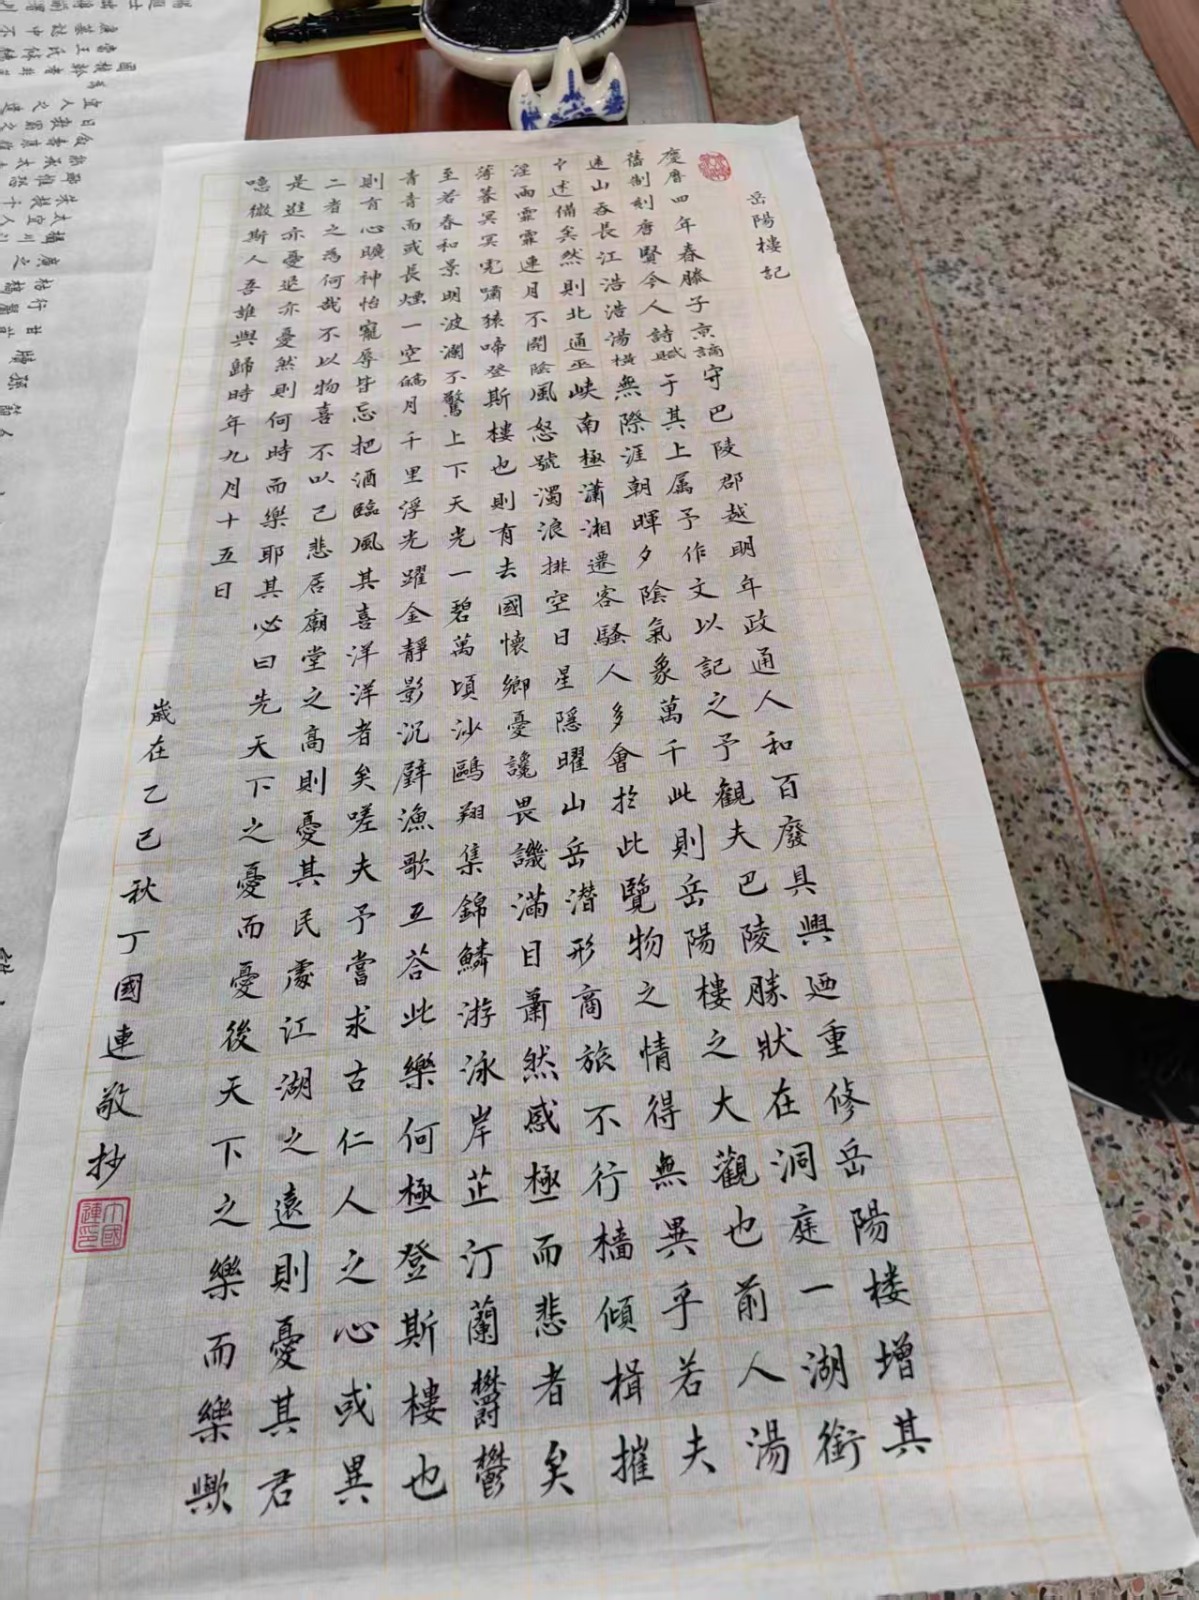 岳陽樓記
慶曆四年春滕子京謫守巴陵郡越明年政通人和百廢具興廼重修岳陽楼增其
舊制刻唐賢今人詩賦于其上属予作文以記之予觀夫巴陵勝狀在洞庭一湖銜
遠山吞長江浩浩湯橫無際涯朝暉夕陰氣象萬千此則岳陽樓之大觀也前人湯
之述備矣然則北通巫峽南極瀟湘遷客騷人多會於此覽物之情得無異乎若夫
淫雨霏霏連月不開陰風怒號濁浪排空日星隱曜山岳潜形商旅不行檣傾楫摧
薄暮冥冥虎嘯猿啼登斯樓也則有去國懷鄉憂讒畏譏滿目蕭然感極而悲者矣
至若春和景明波瀾不驚上下天光一碧萬頃沙鷗翔集錦鱗游泳岸芷汀蘭鬱鬱
青青而或長煙一空皓月千里浮光躍金靜影沉璧漁歌互荅此樂何極登斯樓也
則有心曠神怡寵辱皆忘把酒臨風其喜洋洋者矣嗟夫予嘗求古仁人之心或異
二者之為何哉不以物喜不以己悲居廟堂之高則憂其民處江湖之遠則憂其君
是進亦憂退亦憂然則何時而樂耶其必曰先天下之憂而憂後天下之樂而樂歟
噫微斯人吾誰與歸時年九月十五日
歲在乙巳秋丁國連敬抄